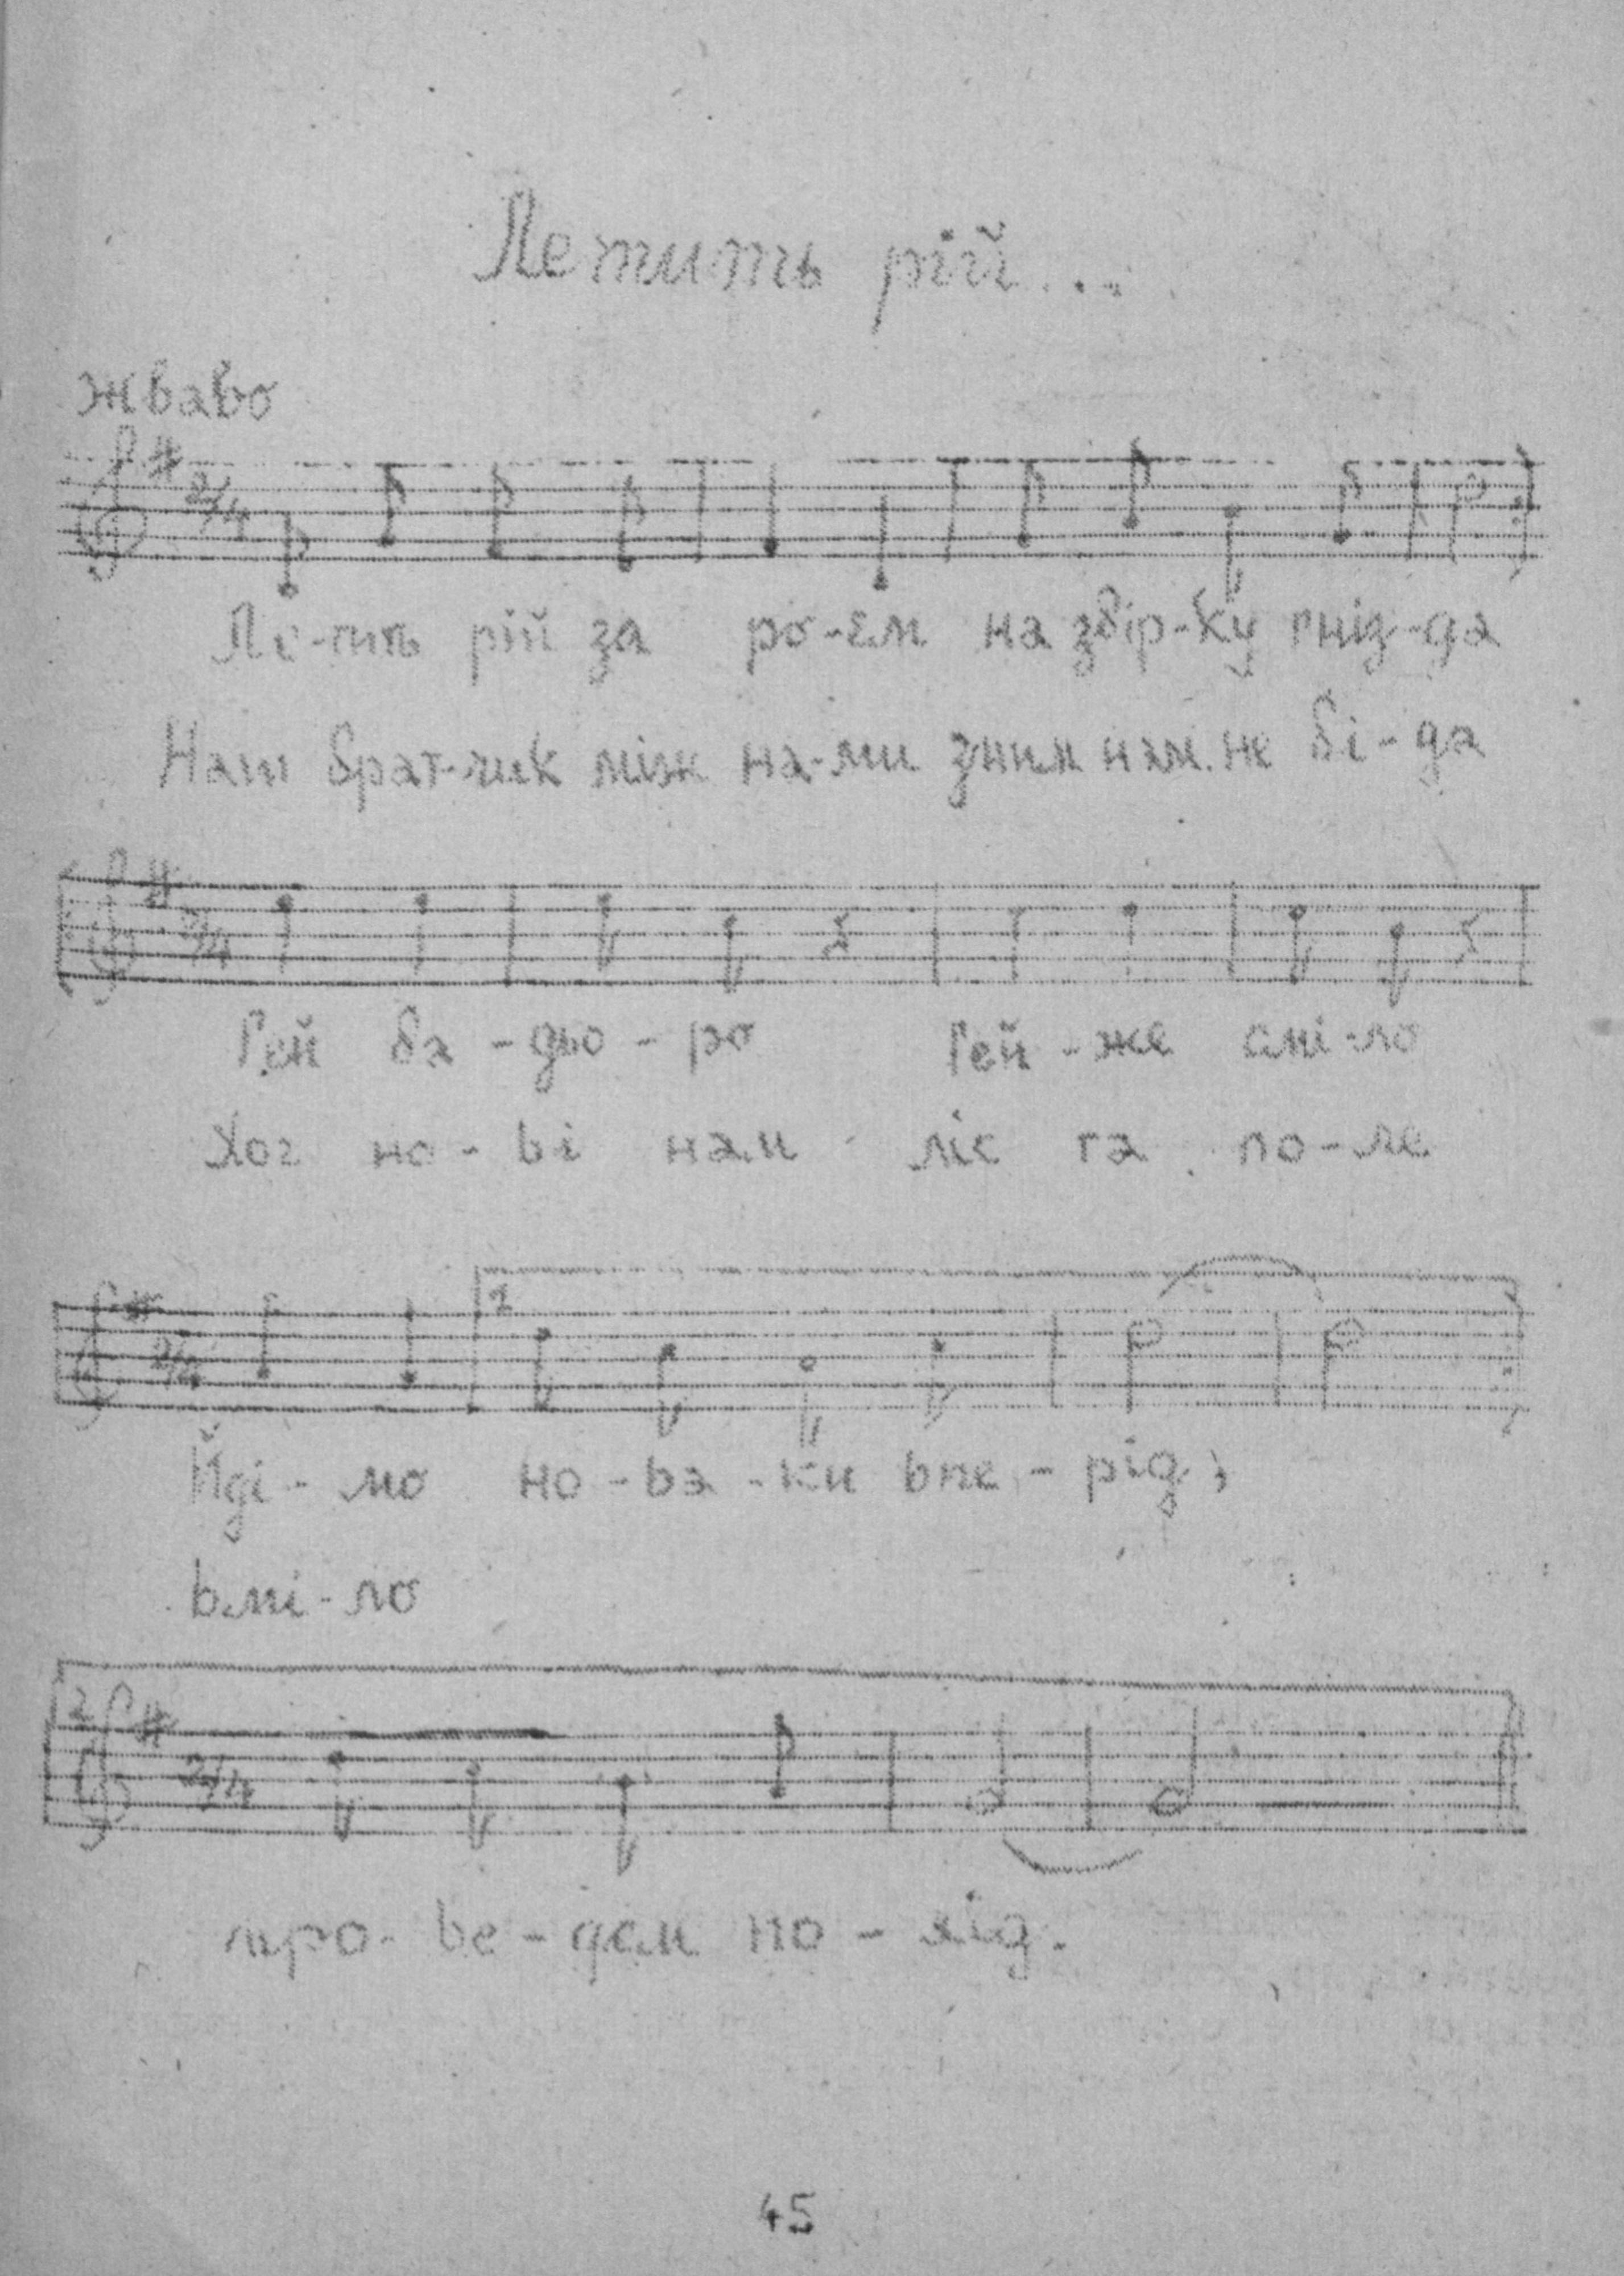 Летить рій...
Жваво
2/4
Ле-тить рій за ро-єм на збір-ку гніз-да
Наш брат-чик між на-ми зним нам не бі-да
2/4
Гей ба-дьо-ро Гей-же смі-ло
Хоч но-ві нам ліс та по-ле
1
2/4
Йді-мо но-ва-ки впе-рід,
вмі-ло
2
2/4
про-ве-дем по-хід.
45